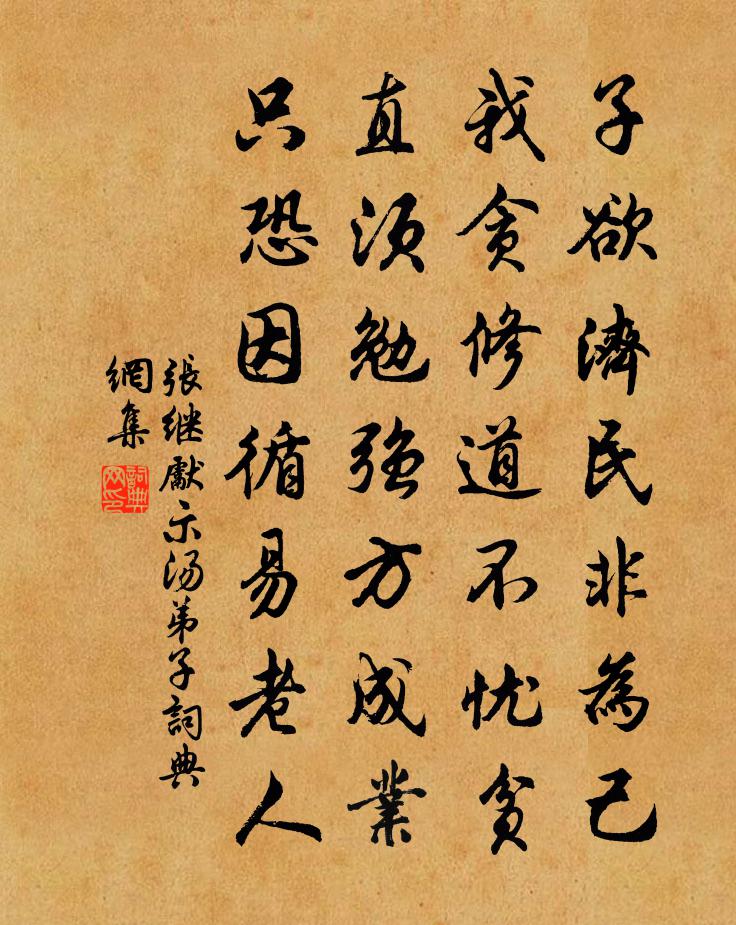 子欲濟民非為己
我貪修道不忧貧
直須勉強方成業
只恐因循易老人
張继獻示汤弟子詞典
網集
詞典
网印